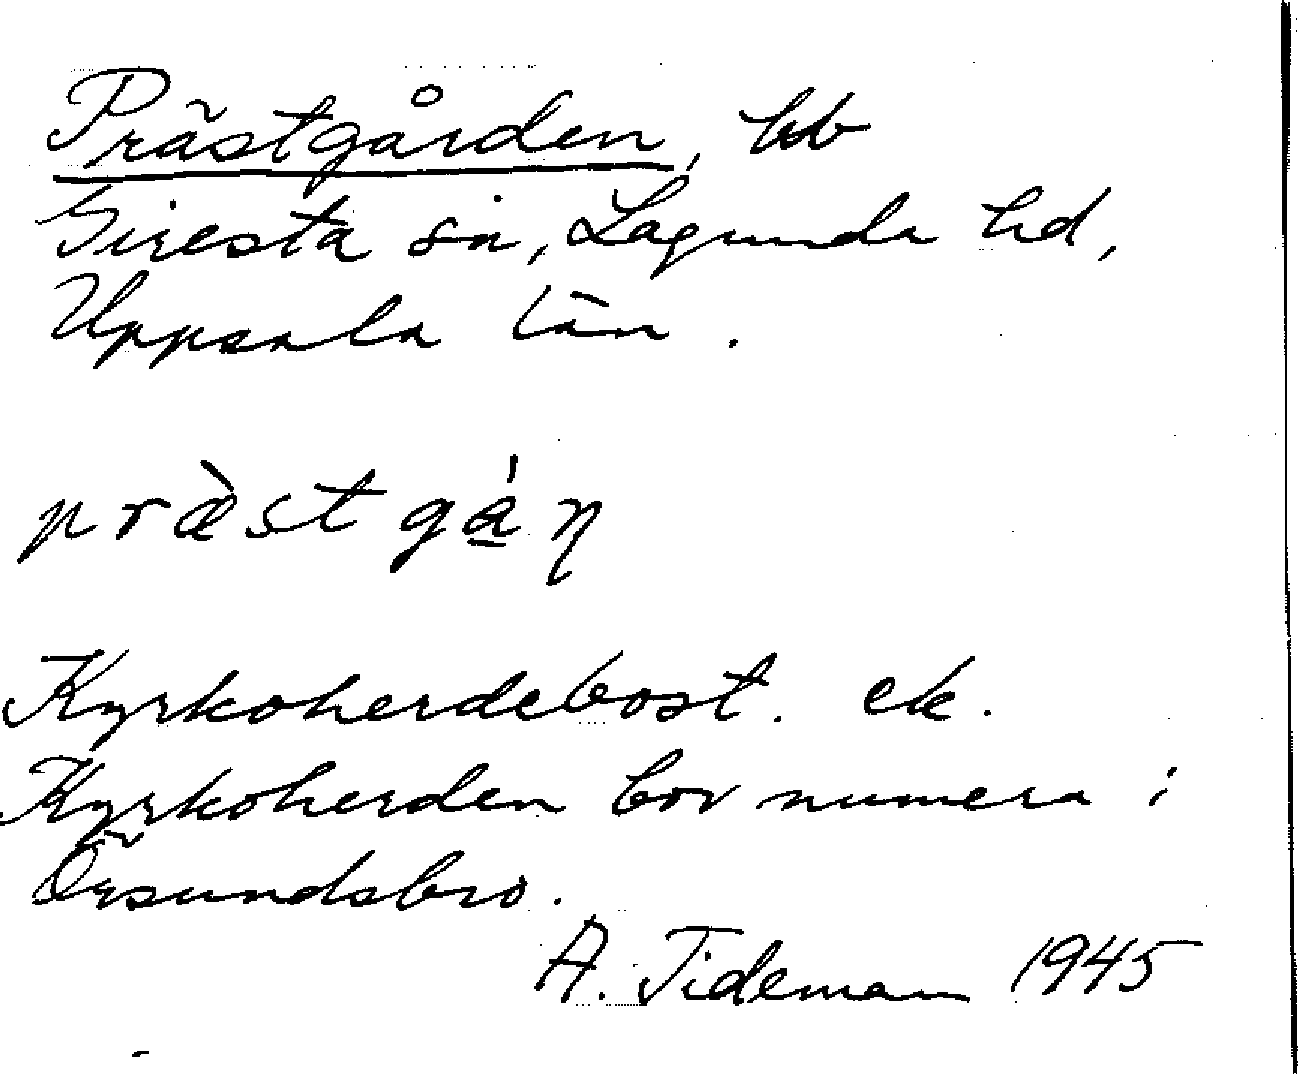 Prästgården, bb
Giresta sn, Lagunda hd,
Uppsala län.
præ̀stgá̱ṇ
Kyrkoherdebost. ek.
Kyrkoherden bor numera i
Örsundsbro.
A. Tideman 1945